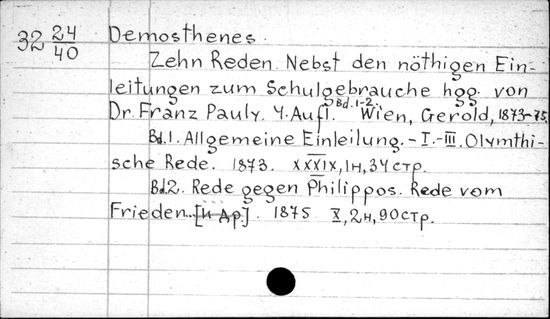 32 24/40 Demosthenes.
Zehn Reden. Nebst den nöthigen Ein-
leitungen zum Schulgebrauche hgg. von
Dr. Franz Pauly. 4. Aufl. Bd.1-2. Wien, Gerold, 1873-75.
Bd.1. Allgemeine Einleilung. - I.-III. Olymthi-
sche Rede. 1873. XXXIX, 1н, 34 стр.
Bd.2. Rede gegen Philippos. Rede vom
Frieden. [и др]. 1875 X, 2н, 90 стр.